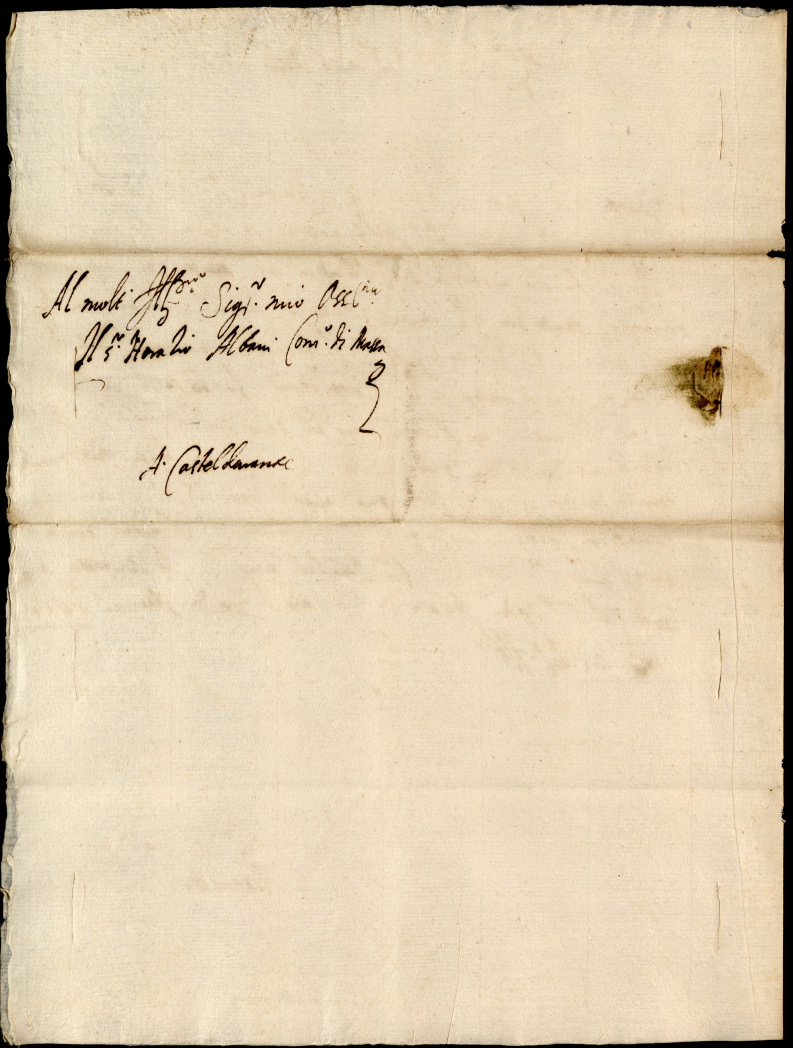 Al molt Ill.re Sig.r mio Oss.mo
Il S.r Horatio Albani Com.o di Massa
A Casteldurante